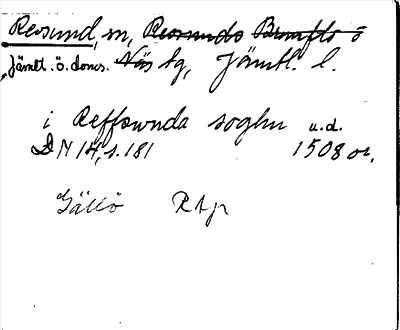 Revsund, m, Revsunds Brunflo ö
Jämtl. ö. doms. Näs tg, Jämtl. l.
i Reffswnda soghn u.d.
DN 14, s. 181 1508 or.
Gällö Rtjr